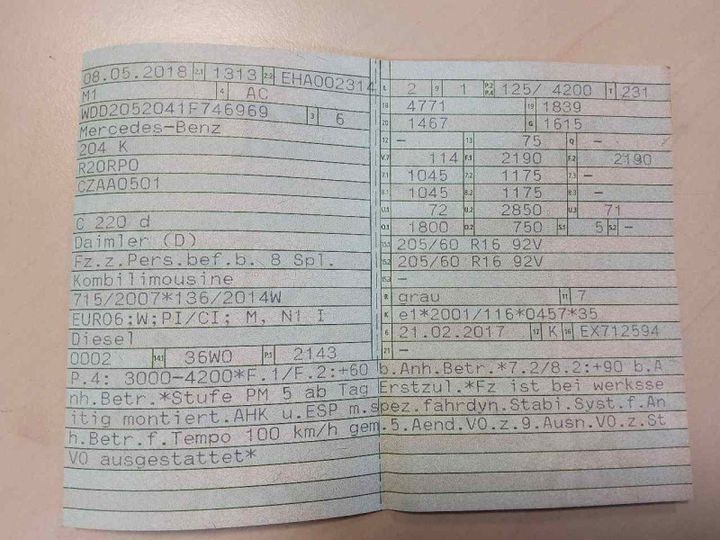 08.05.2018 2.1 1313 2.2 EHA002314
M1 4 AC
WDD2052041F746969 3 6
Mercedes-Benz
204 K
R20RP0
CZAA0501
C 220 d
Daimler (D)
Fz.z.Pers.bef.b. 8 Spl.
Kombilimousine
715/2007*136/2014W
EURO6;W;PI/CI; M, N1 I
Diesel
0002 14.1 36W0 P.1 2143
L 2 9 1 P.2 P.4 125/ 4200 T 231
18 4771 19 1839
20 1467 G 1615
12 - 13 75 Q -
V.7 114 F.1 2190 F.2 2190
7.1 1045 7.2 1175 7.3 -
8.1 1045 8.2 1175 8.3 -
U.1 72 U.2 2850 U.3 71
O.1 1800 O.2 750 S.1 5 S.2 -
15.1 205/60 R16 92V
15.2 205/60 R16 92V
15.3 -
R grau 11 7
K e1*2001/116*0457*35
6 21.02.2017 17 K 16 EX712594
21 -
P.4: 3000-4200*F.1/F.2:+60 b.Anh.Betr.*7.2/8.2:+90 b.A
nh.Betr.*Stufe PM 5 ab Tag Erstzul.*Fz ist bei werksse
itig montiert.AHK u.ESP m.spez.fahrdyn.Stabi.Syst.f.An
h.Betr.f.Tempo 100 km/h gem.5.Aend.VO.z.9.Ausn.VO.z.St
VO ausgestattet*